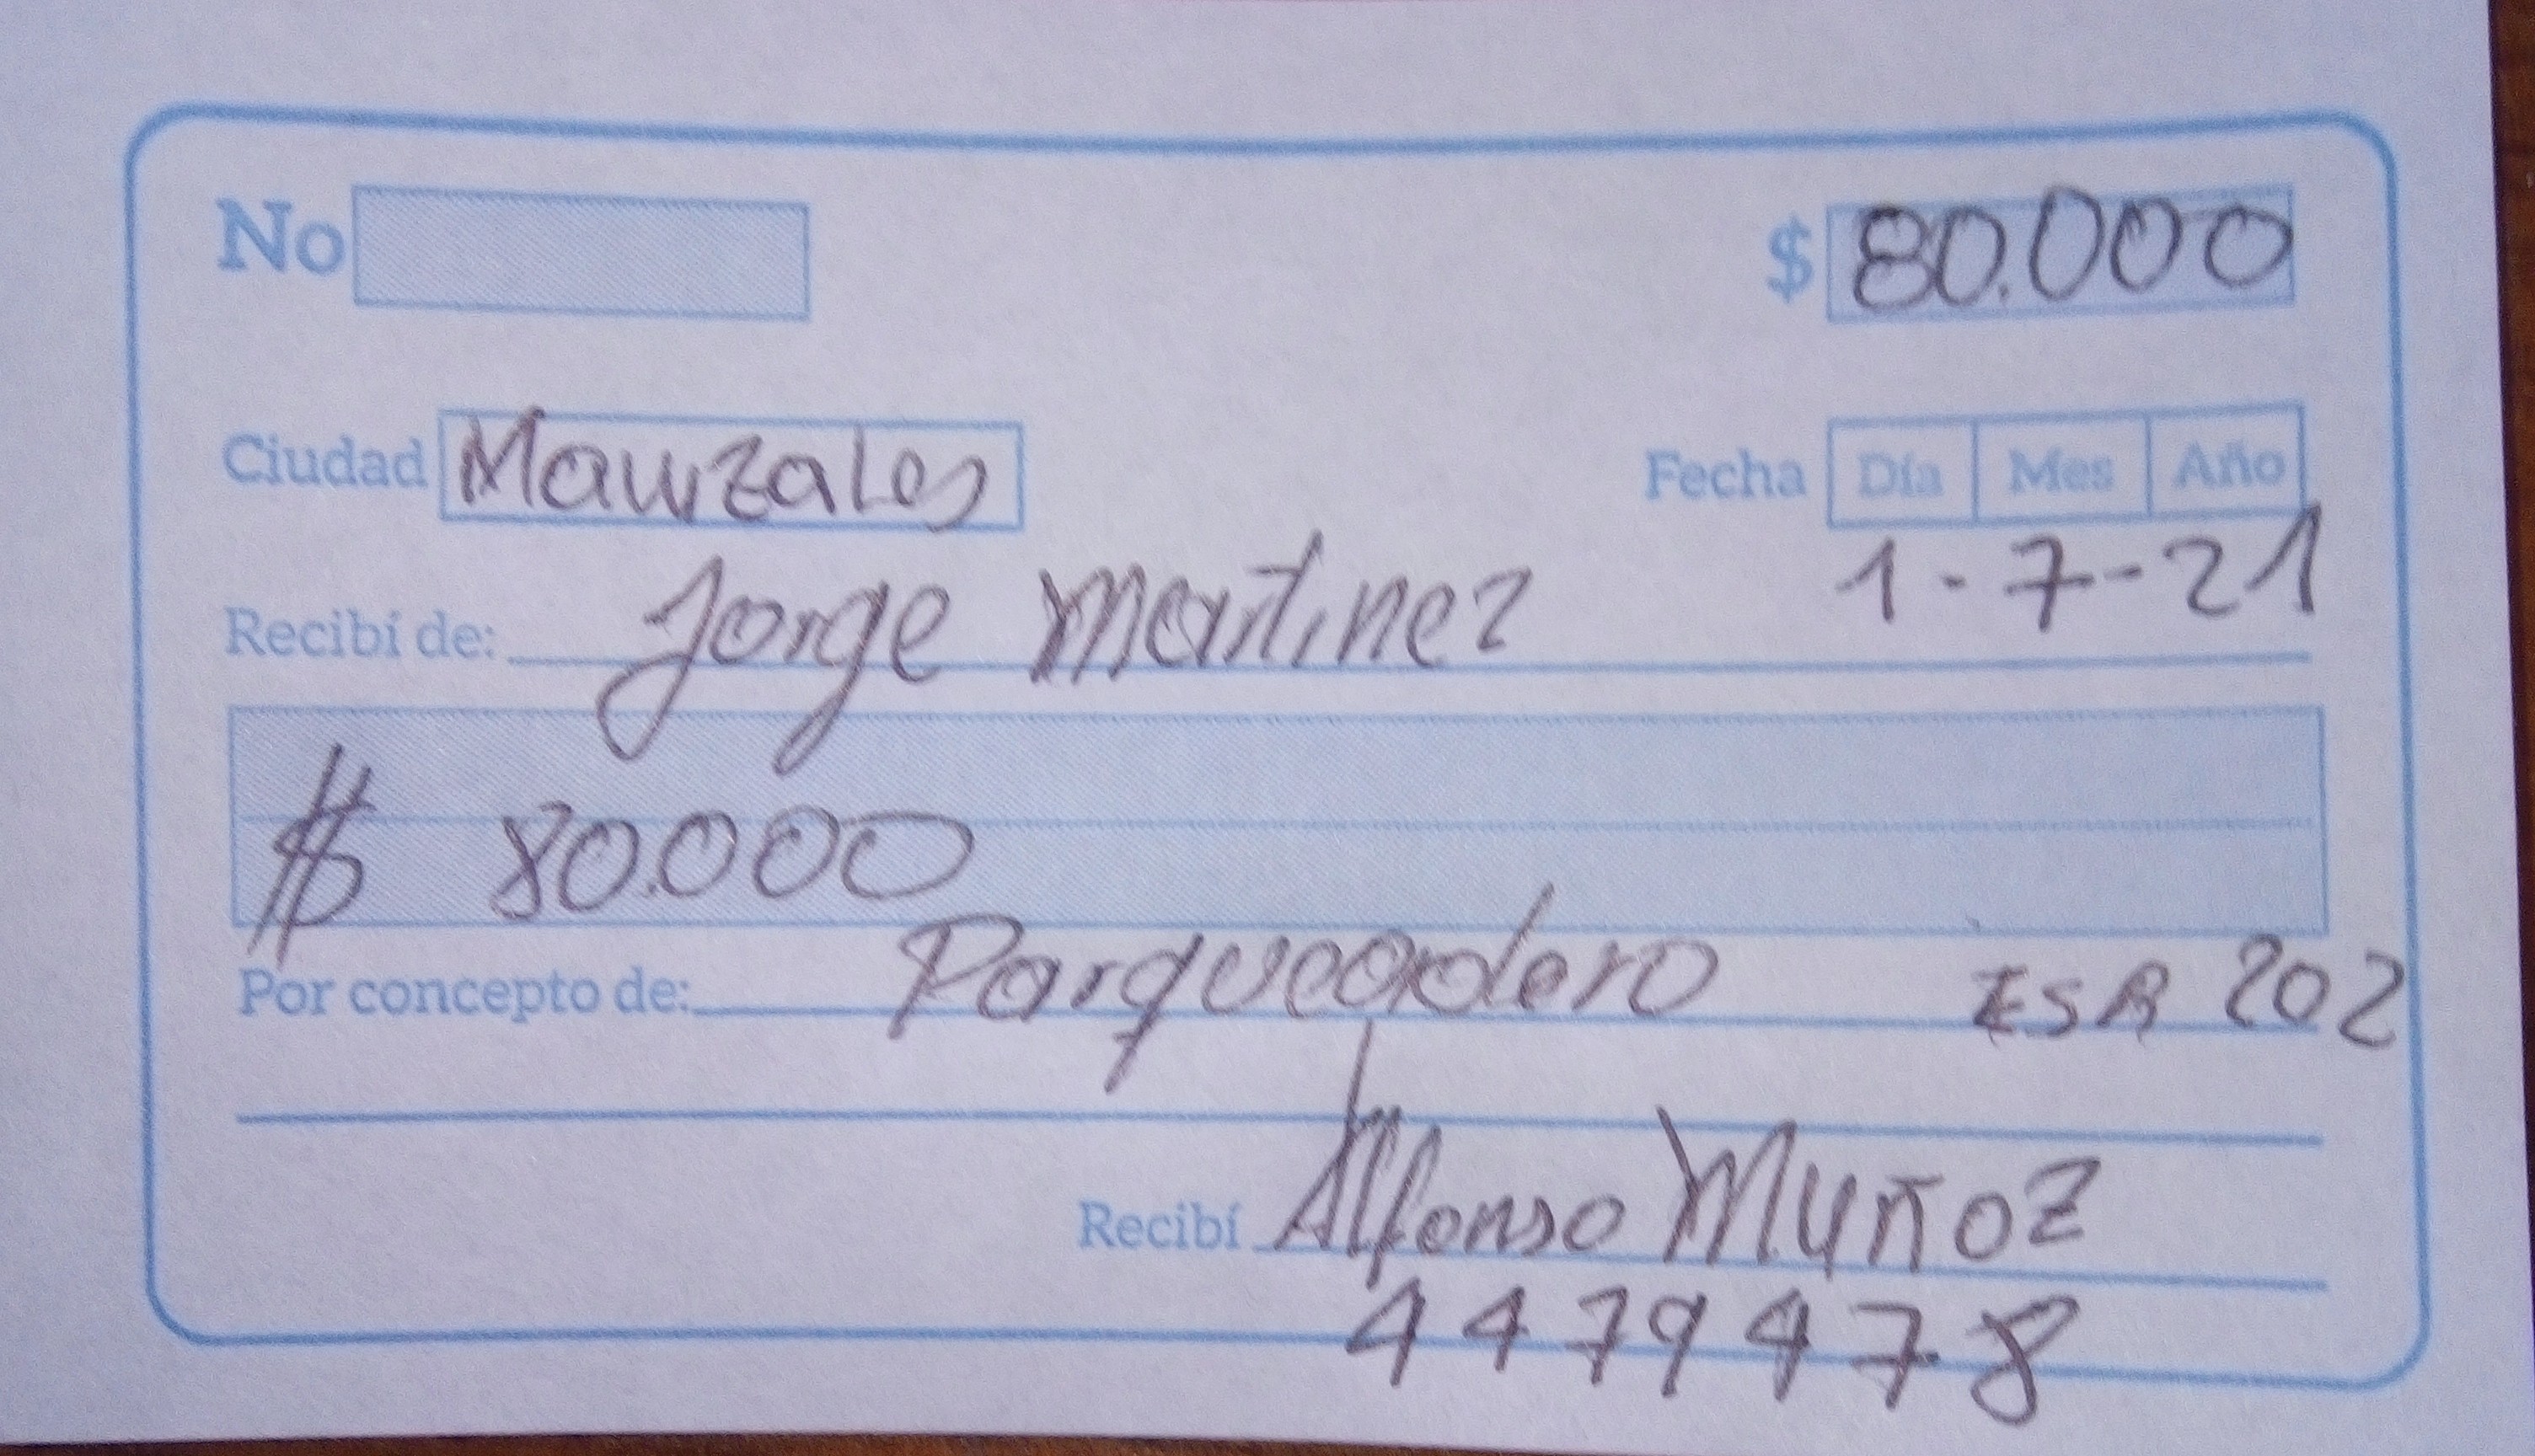 No $ 80.000
Ciudad Manizales Fecha Día Mes Año
1-7-21
Recibí de: Jorge Martinez
$ 80.000
Por concepto de: Parqueadero ESR 202
Recibí Alfonso Muñoz
4479478